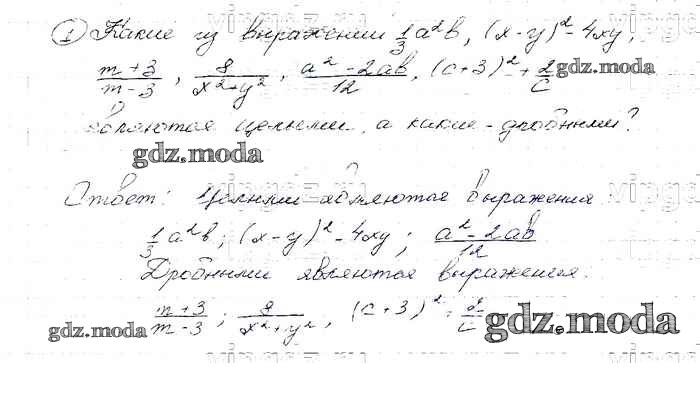 ① Какие из выражений 1/3 a²b, (x-y)² - 4xy,
(m+3)/(m-3), 8/(x²+y²), (a²-2ab)/12, (c+3)² + 2/c gdz.moda
являются целыми, а какие - дробными?
gdz.moda
Ответ: Целыми являются выражения
1/3 a²b; (x-y)² - 4xy; (a²-2ab)/12
Дробными являются выражения:
(m+3)/(m-3); 8/(x²+y²), (c+3)² + 2/c
gdz.moda
gdz.moda